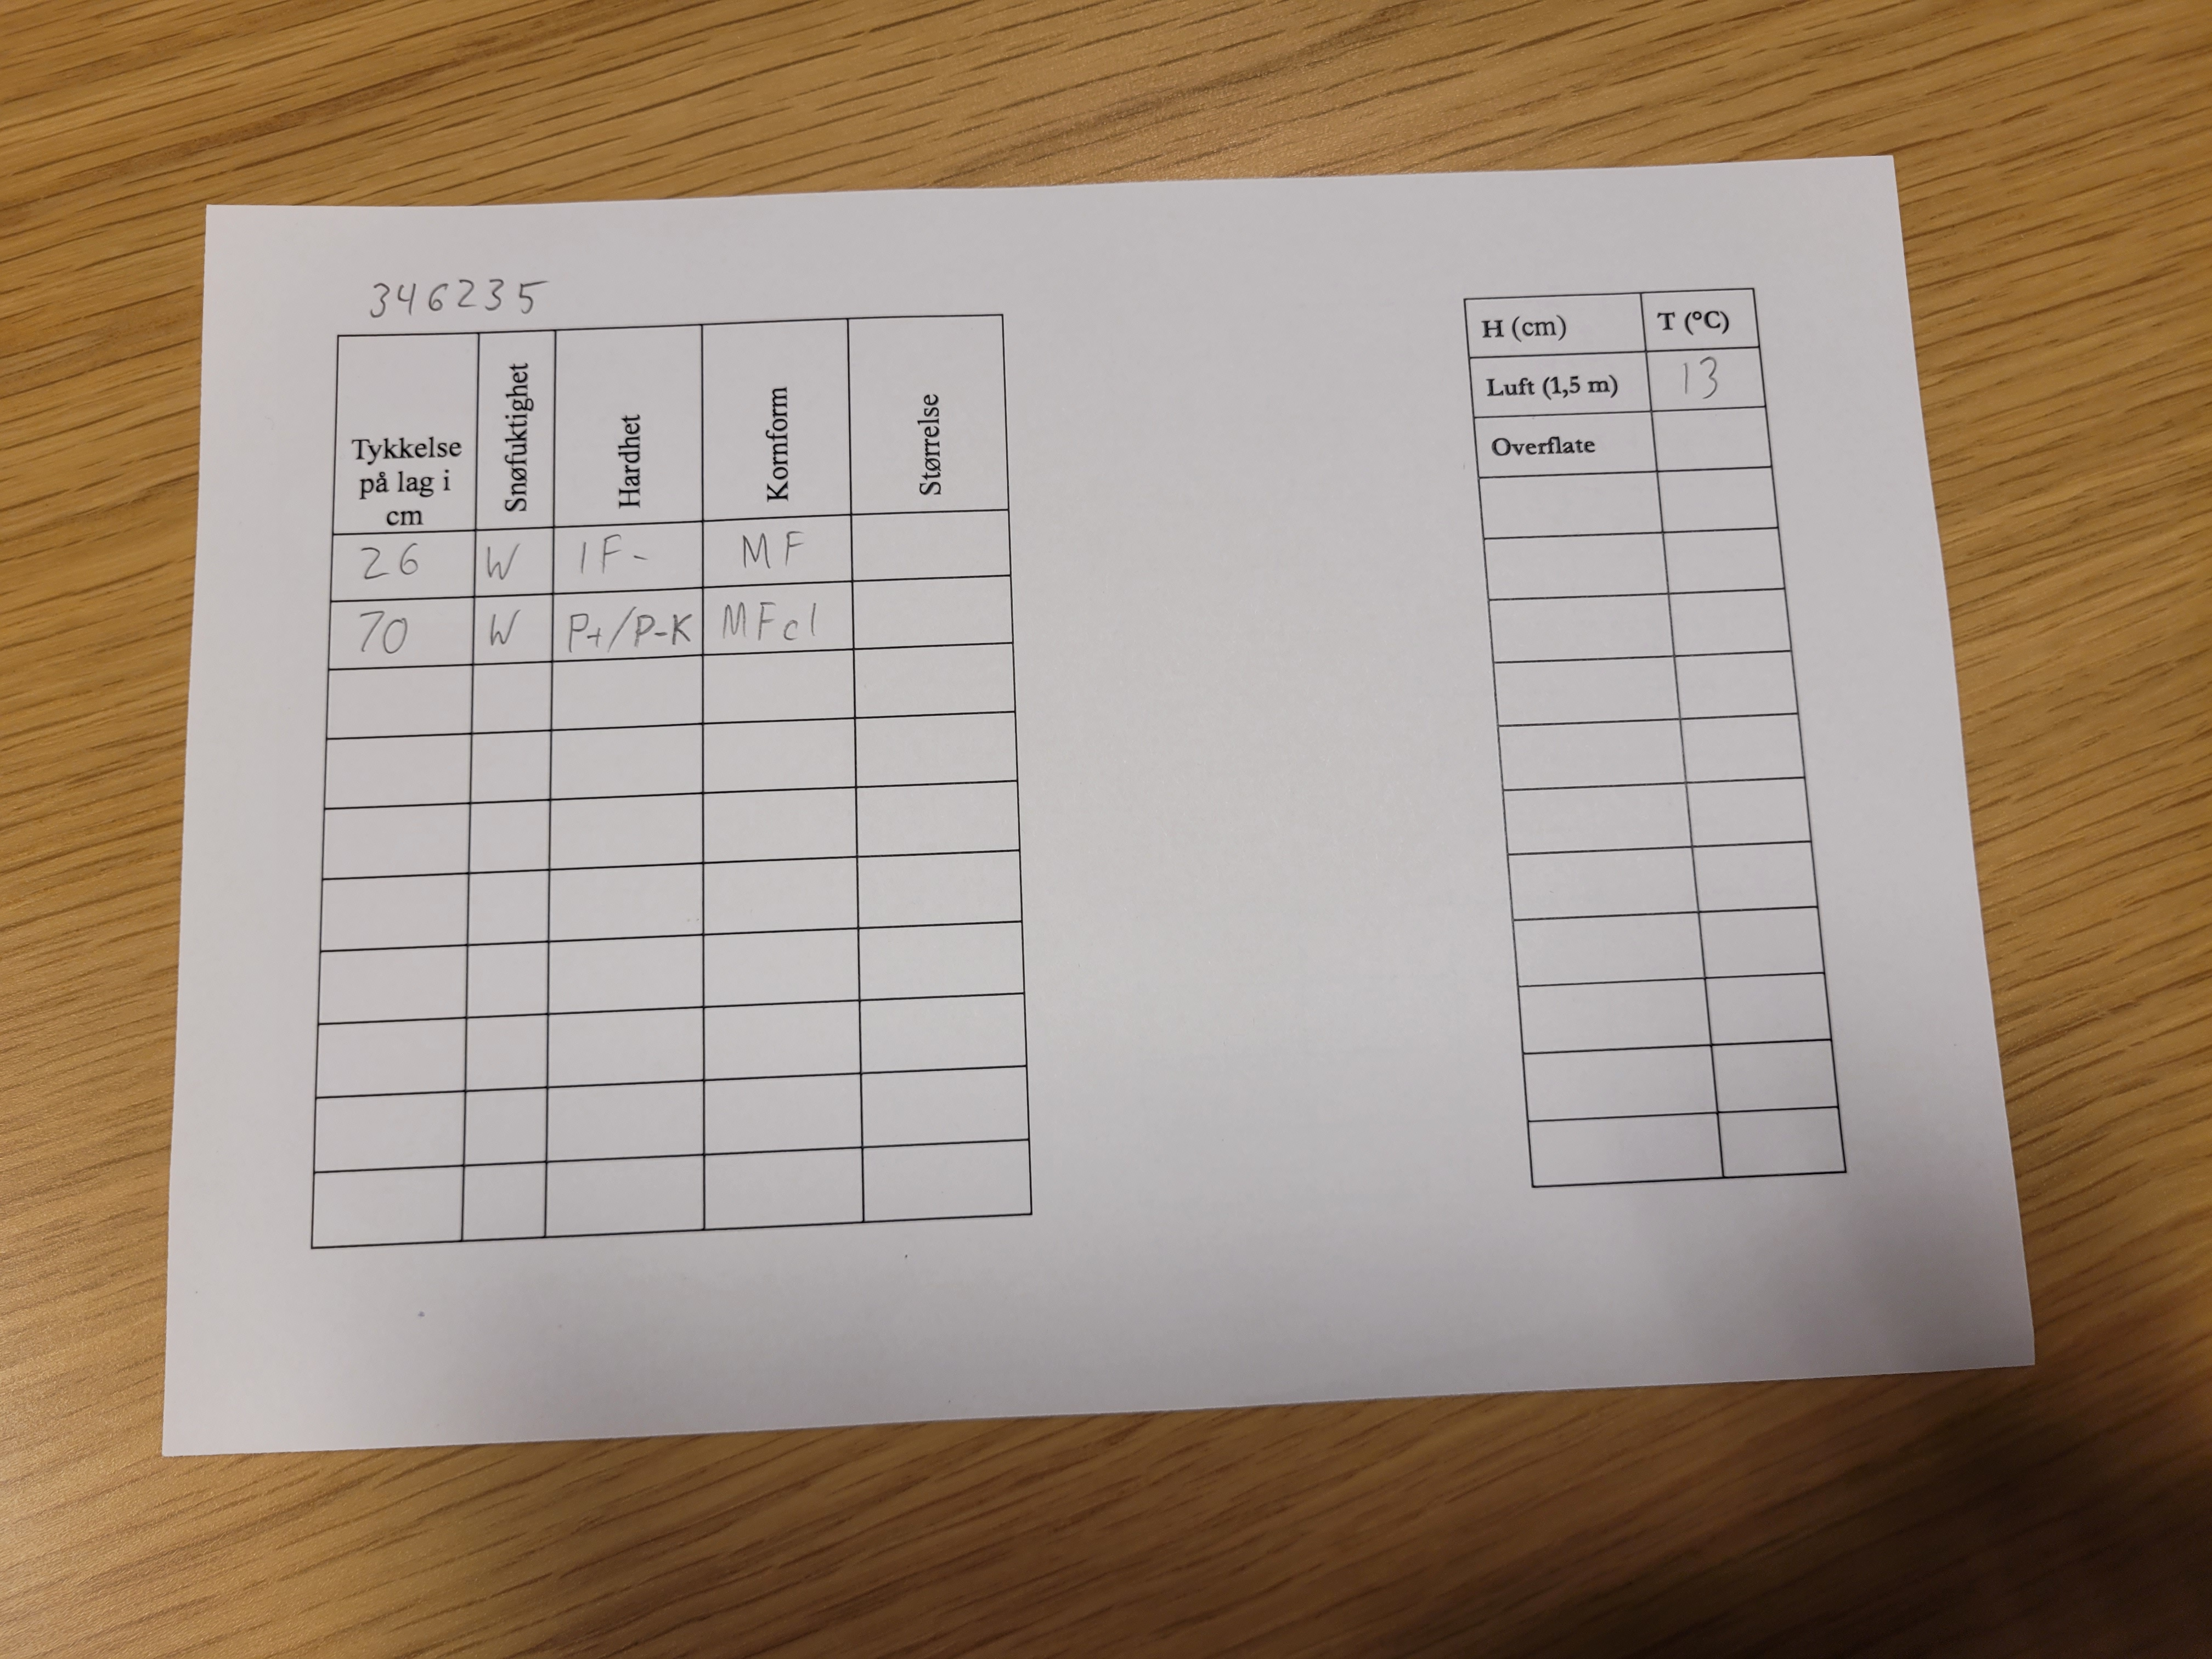 346235
Tykkelse på lag i cm Snøfuktighet Hardhet Kornform Størrelse
26 W 1F- MF
70 W P+/P-K MFcl
H (cm) T (°C)
Luft (1,5 m) 13
Overflate